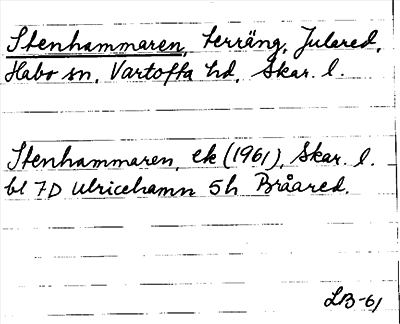 Stenhammaren, terräng, Julared,
Habo sn, Vartofta hd, Skar. l.
Stenhammaren, ek (1961), Skar. l.
bl 7D Ulricehamn 5h Bråared.
LB-61